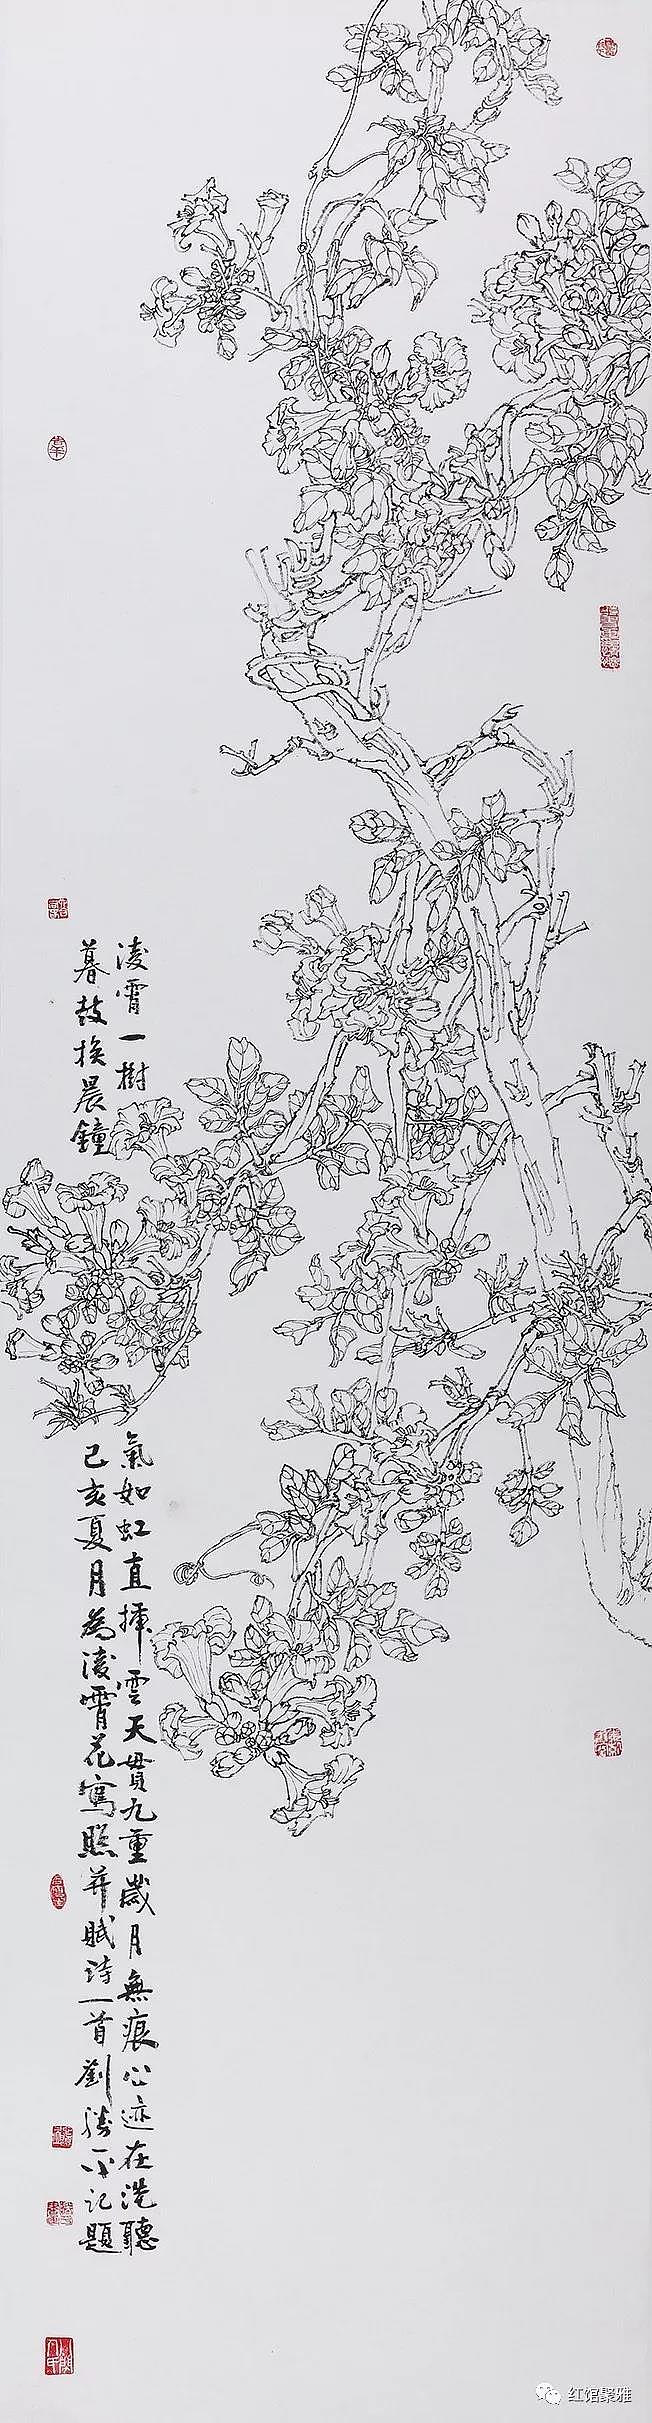 凌霄一樹
氣如虹直插雲天貫九重歲月無痕心迹在洗聽
暮鼓換晨鐘
己亥夏月為凌霄花寫照并賦詩一首劉勝平記題
红馆聚雅